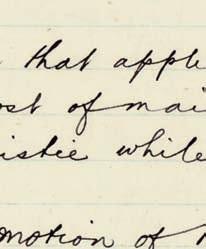 that apple
ost of mai
istie while
motion of